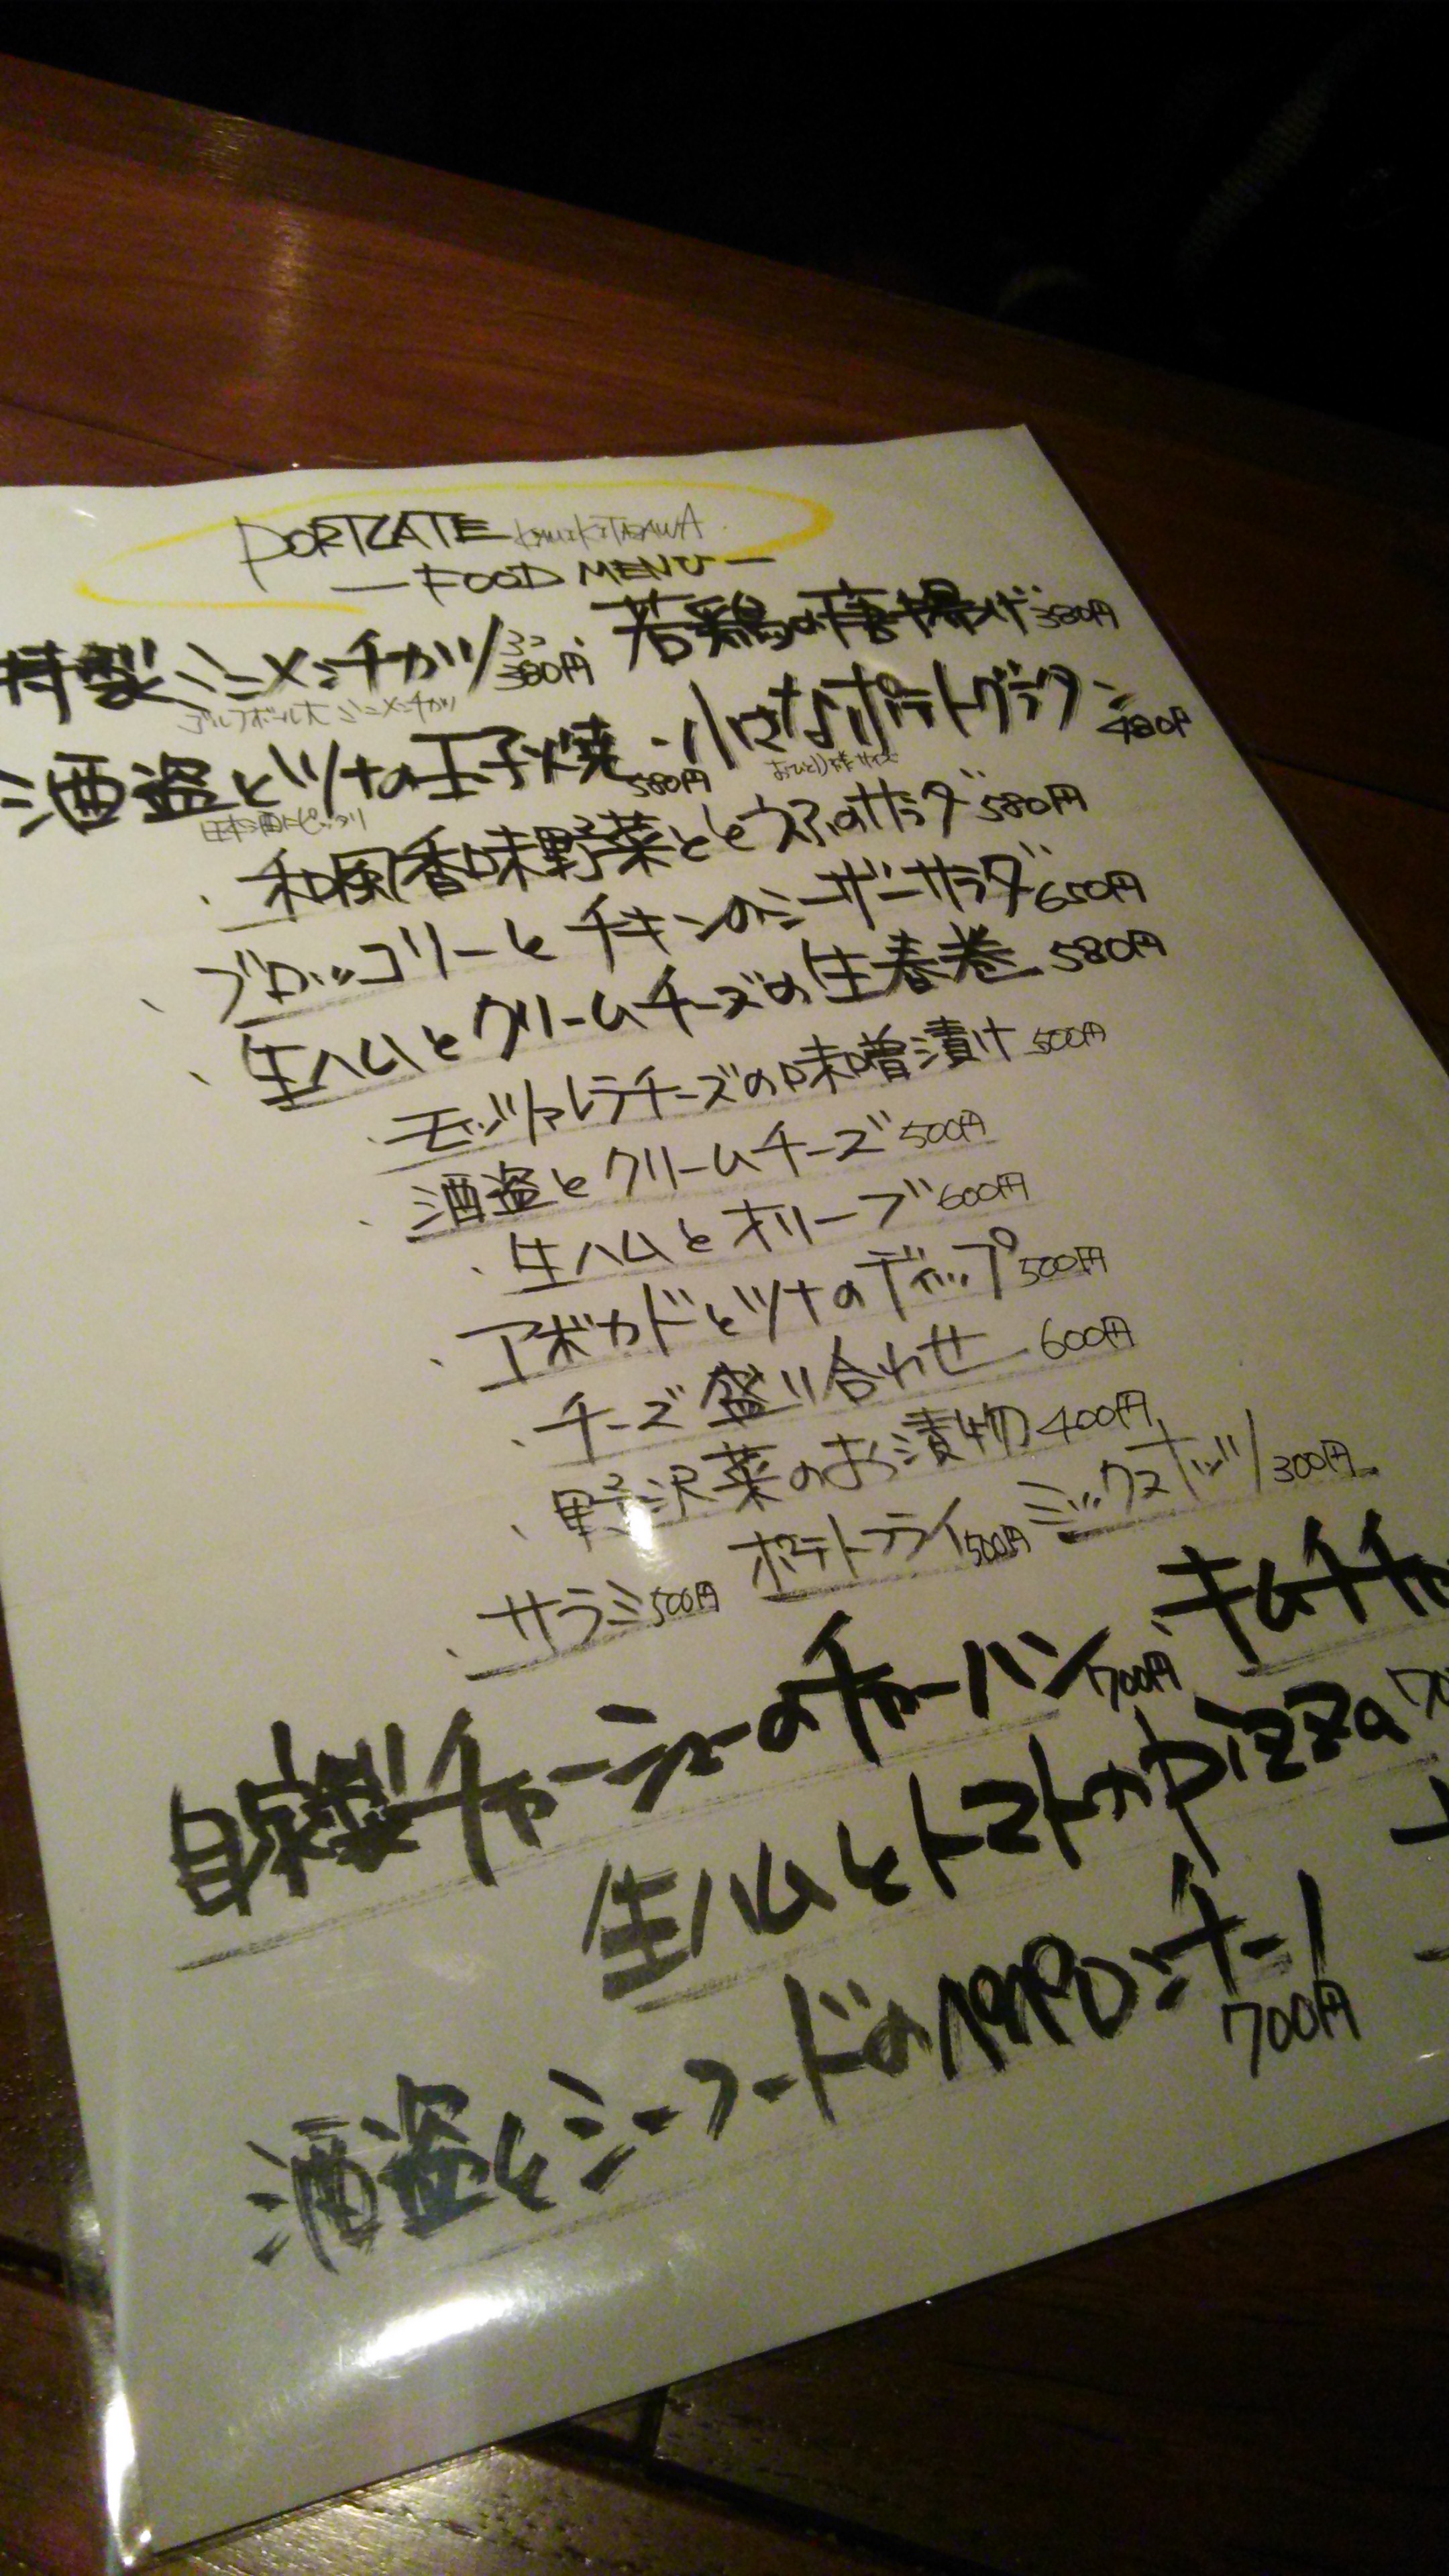 PORTLATE KAMIKITAZAWA
— FOOD MENU —
特製ミニメンチカツ 3コ 380円 ・若鶏の唐揚げ 380円
ゴルフボール大ミニメンチカツ
酒盗とツナの玉子焼 580円 ・小さなポテトグラタン 480円
日本酒にピッタリ おひとり様サイズ
・和風香味野菜ととうふのサラダ 580円
・ブロッコリーとチキンのシーザーサラダ 650円
・生ハムとクリームチーズの生春巻 580円
・モッツァレラチーズの味噌漬け 500円
・酒盗とクリームチーズ 500円
・生ハムとオリーブ 600円
・アボカドとツナのディップ 500円
・チーズ盛り合わせ 600円
・野沢菜のお漬物 400円
・サラミ 500円 ポテトフライ 500円 ミックスナッツ 300円
自家製チャーシューのチャーハン 700円 キムチチャ
生ハムとトマトのpizza 70
酒盗とシーフードのペペロンチーノ 700円